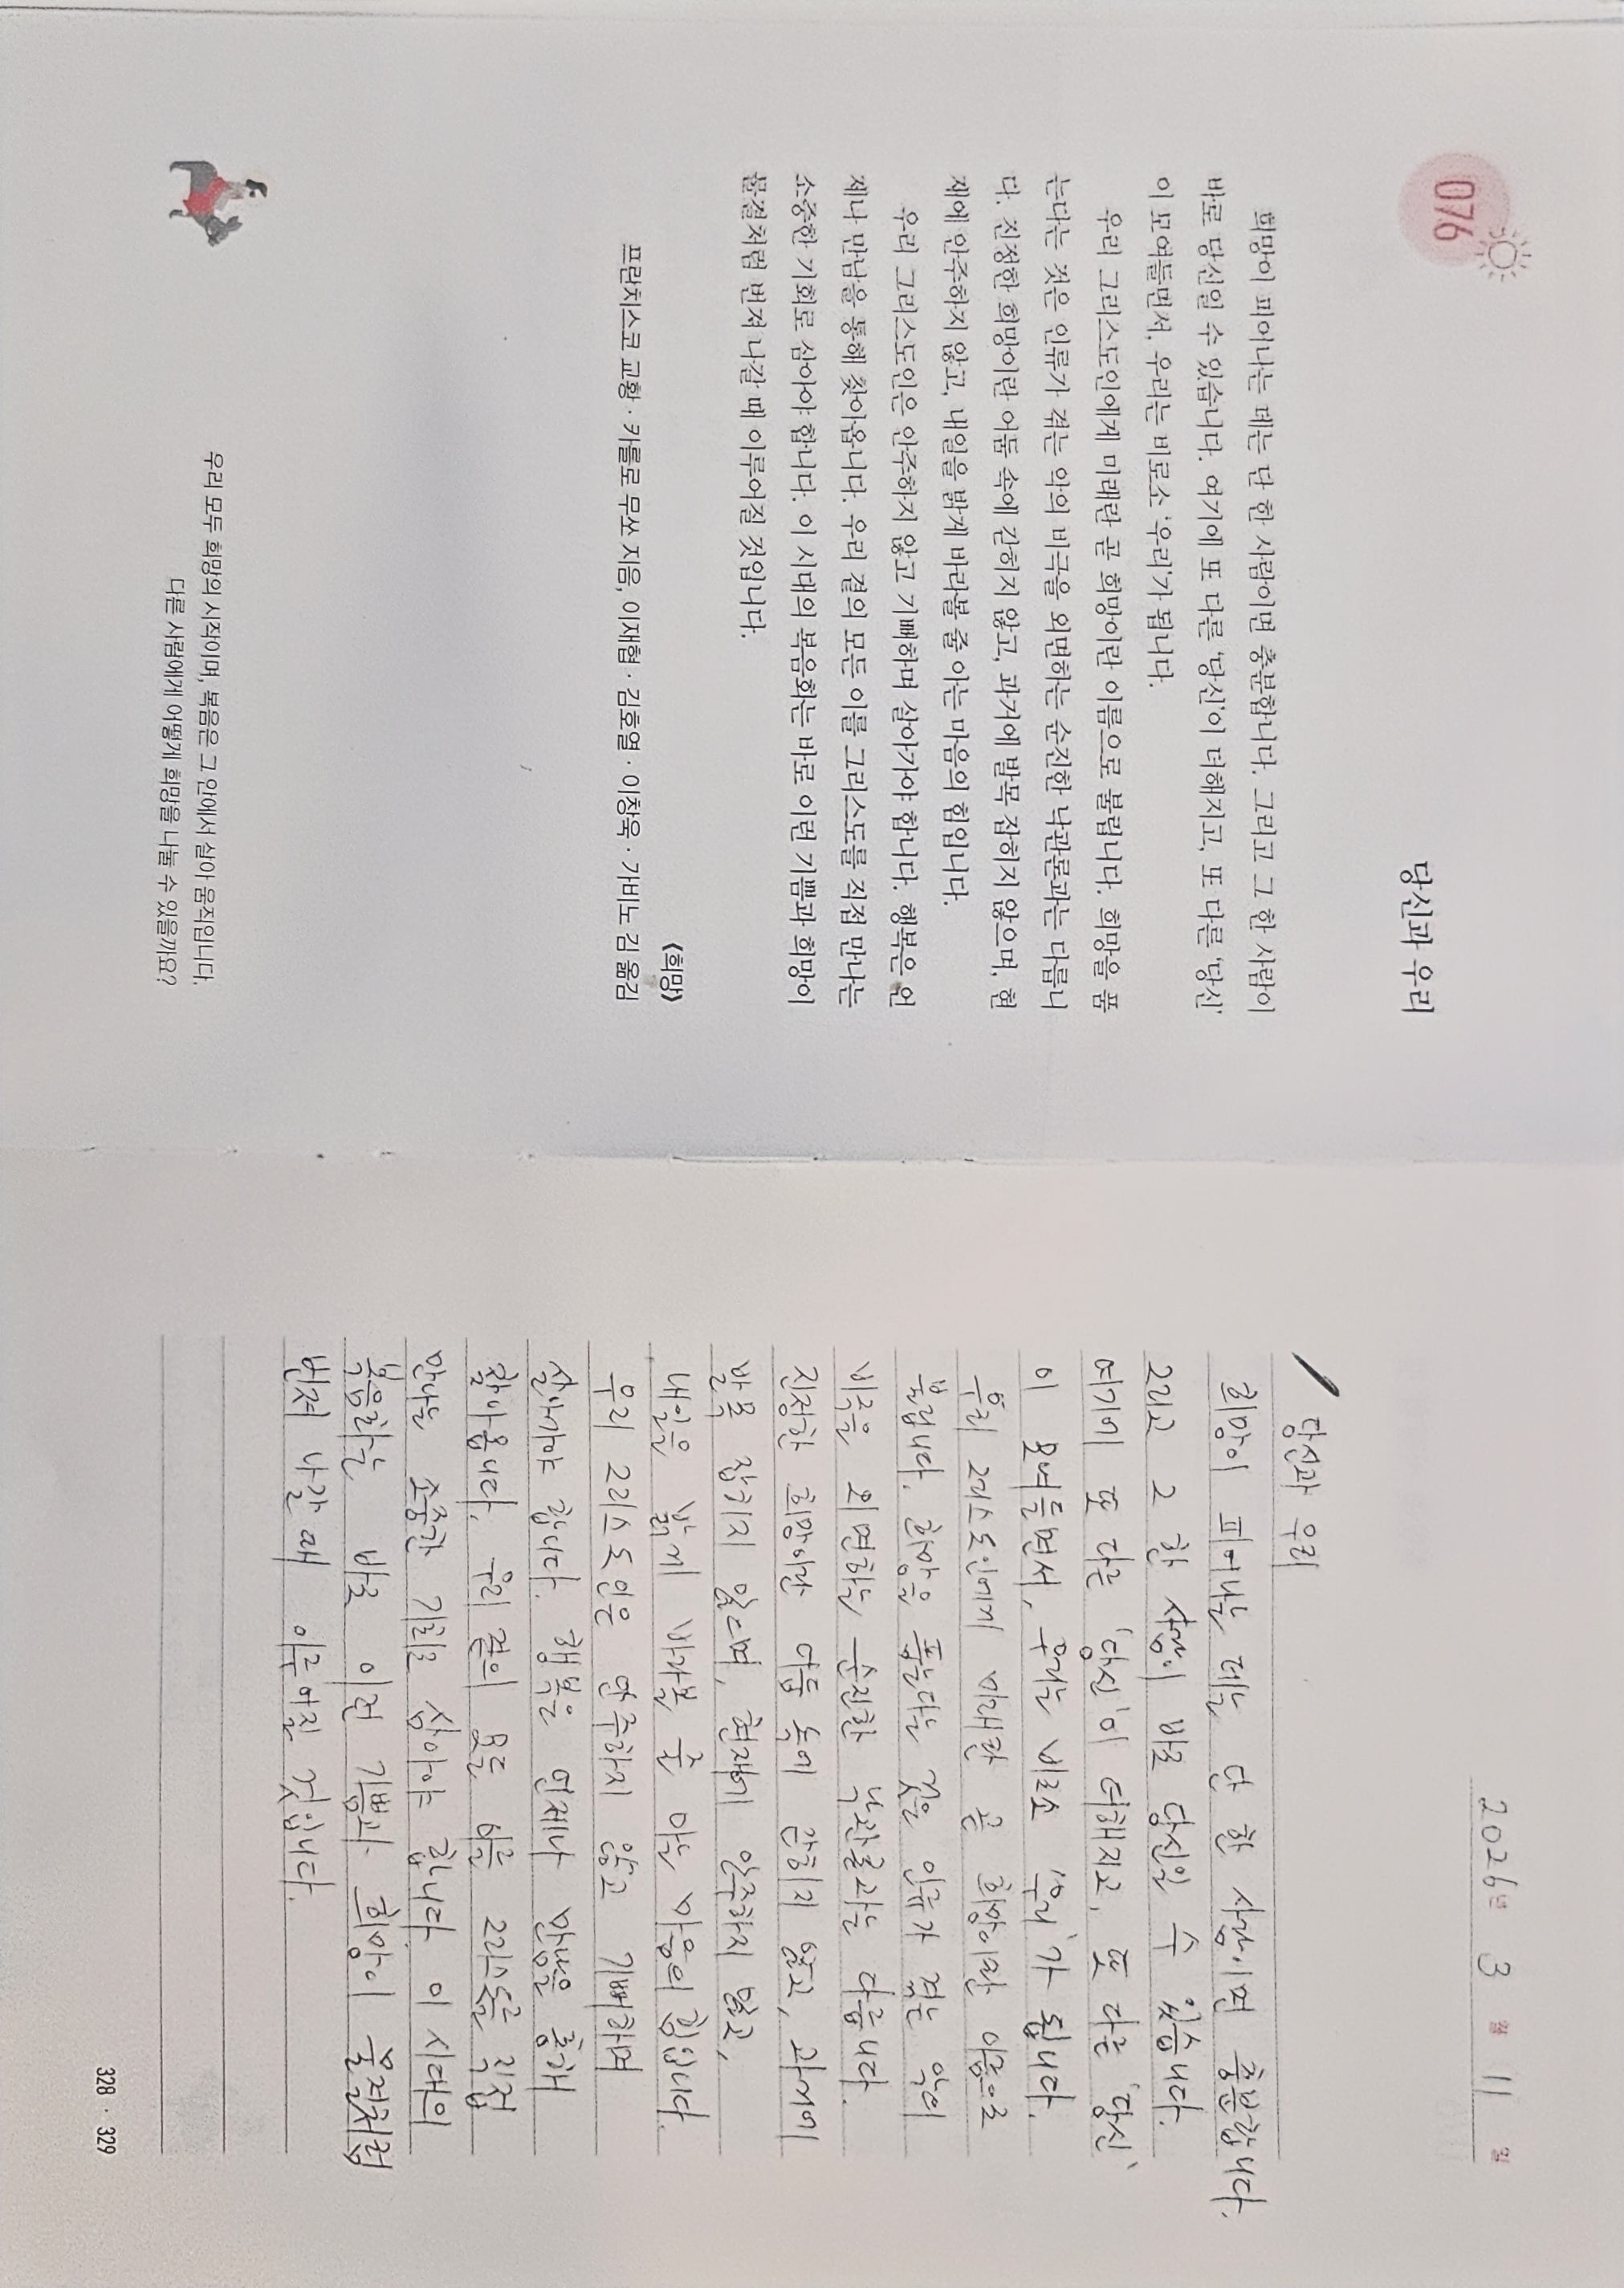 076
당신과 우리
희망이 피어나는 데는 단 한 사람이면 충분합니다. 그리고 그 한 사람이
바로 당신일 수 있습니다. 여기에 또 다른 '당신'이 더해지고, 또 다른 '당신'
이 모여들면서, 우리는 비로소 '우리'가 됩니다.
우리 그리스도인에게 미래란 곧 희망이란 이름으로 불립니다. 희망을 품
는다는 것은 인류가 겪는 악의 비극을 외면하는 순진한 낙관론과는 다릅니
다. 진정한 희망이란 어둠 속에 갇히지 않고, 과거에 발목 잡히지 않으며, 현
재에 안주하지 않고, 내일을 밝게 바라볼 줄 아는 마음의 힘입니다.
우리 그리스도인은 안주하지 않고 기뻐하며 살아가야 합니다. 행복은 언
제나 만남을 통해 찾아옵니다. 우리 곁의 모든 이를 그리스도를 직접 만나는
소중한 기회로 삼아야 합니다. 이 시대의 복음화는 바로 이런 기쁨과 희망이
물결처럼 번져 나갈 때 이루어질 것입니다.
《희망》
프란치스코 교황 · 카를로 무쏘 지음, 이재협 · 김호열 · 이창욱 · 가비노 김 옮김
우리 모두 희망의 시작이며, 복음은 그 안에서 살아 움직입니다.
다른 사람에게 어떻게 희망을 나눌 수 있을까요?
2026년 3월 11일
당신과 우리
희망이 피어나는 데는 단 한 사람이면 충분합니다.
그리고 그 한 사람이 바로 당신일 수 있습니다.
여기에 또 다른 '당신'이 더해지고, 또 다른 '당신'
이 모여들면서, 우리는 비로소 '우리'가 됩니다.
우리 그리스도인에게 미래란 곧 희망이란 이름으로
불립니다. 희망을 품는다는 것은 인류가 겪는 악의
비극을 외면하는 순진한 낙관론과는 다릅니다.
진정한 희망이란 어둠 속에 갇히지 않고, 과거에
발목 잡히지 않으며, 현재에 안주하지 않고,
내일을 밝게 바라볼 줄 아는 마음의 힘입니다.
우리 그리스도인은 안주하지 않고 기뻐하며
살아가야 합니다. 행복은 언제나 만남을 통해
찾아옵니다. 우리 곁의 모든 이를 그리스도를 직접
만나는 소중한 기회로 삼아야 합니다. 이 시대의
복음화는 바로 이런 기쁨과 희망이 물결처럼
번져 나갈 때 이루어질 것입니다.
328 · 329